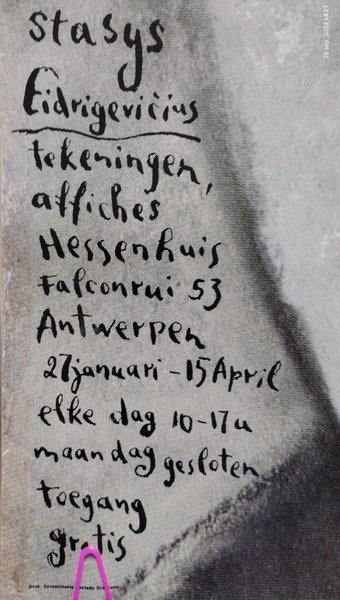 26 sep. 2024 14:21
stasys
Eidrigevičius
tekeningen,
affiches
Hessenhuis
Falconrui 53
Antwerpen
27 januari - 15 April
elke dag 10-17u
maandag gesloten
toegang
gratis
Druk Szczecińskie